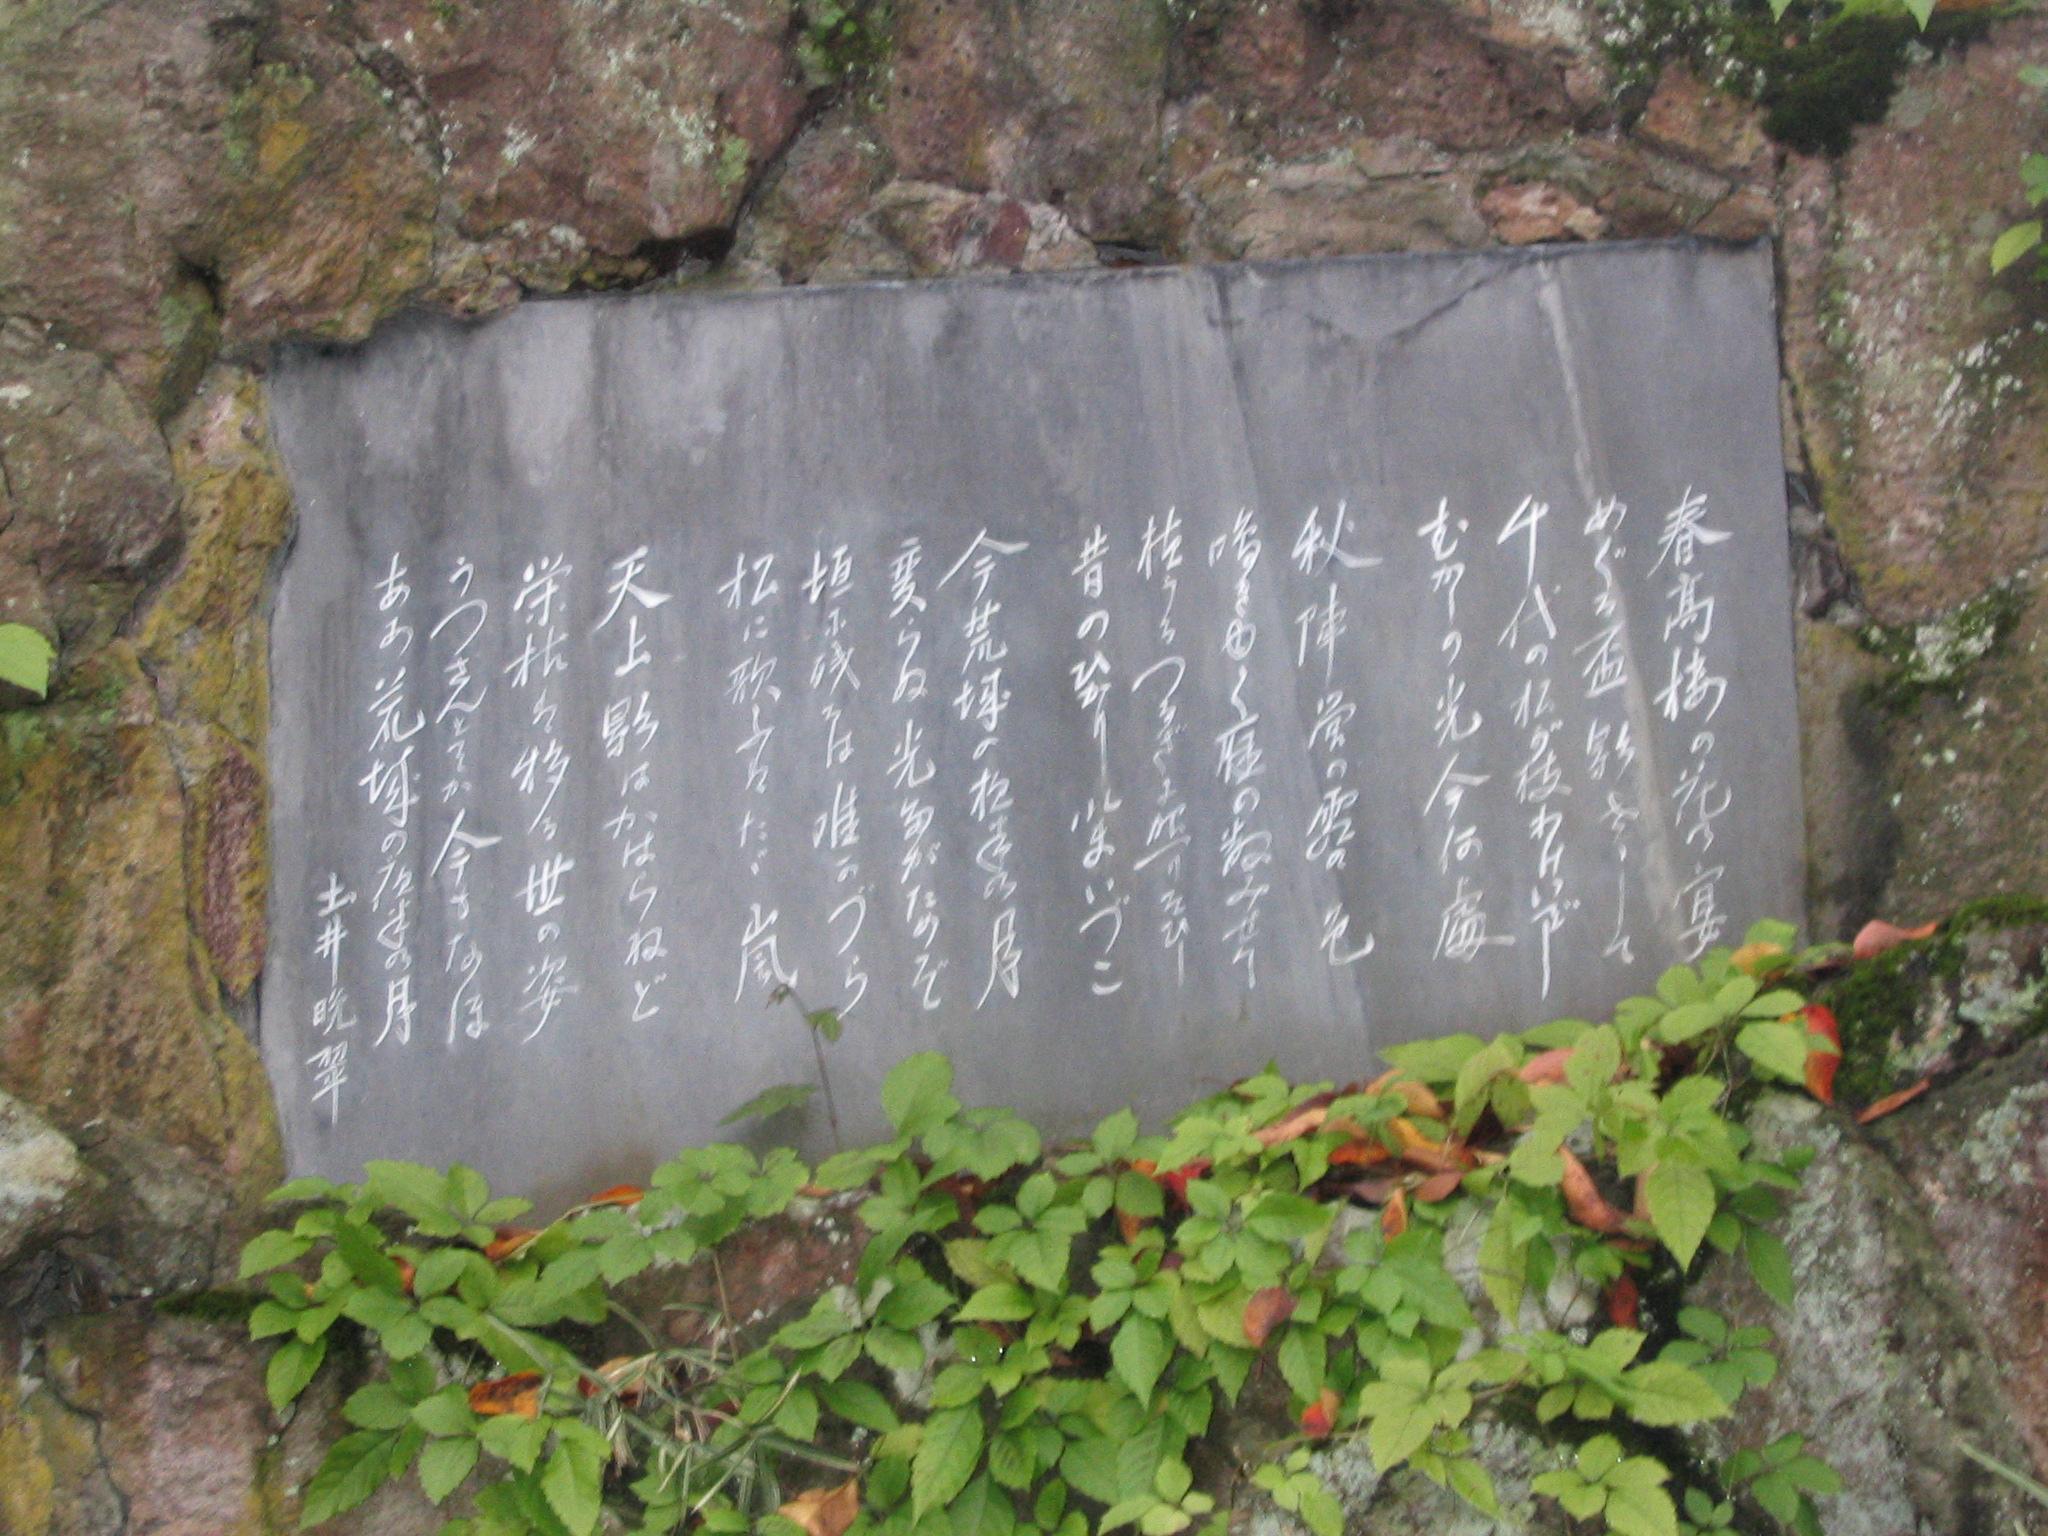 春高楼の花の宴
めぐる盃影さして
千代の松が枝わけいでし
むかしの光今何處
秋陣営の霜の色
鳴き由く雁の数みせて
植うるつるぎに照りそひし
昔のひかり今いづこ
今荒城の夜半の月
変らぬ光誰がためぞ
垣に残るは唯かづら
松に歌ふはたゞ嵐
天上影はかはらねど
栄枯は移る世の姿
うつさんとてか今もなほ
あゝ荒城の夜半の月
土井晩翠